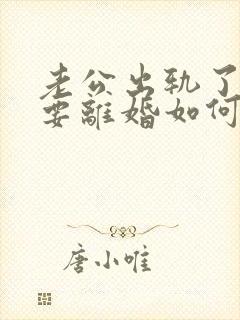 老公出轨了
要離婚如何
唐小唯